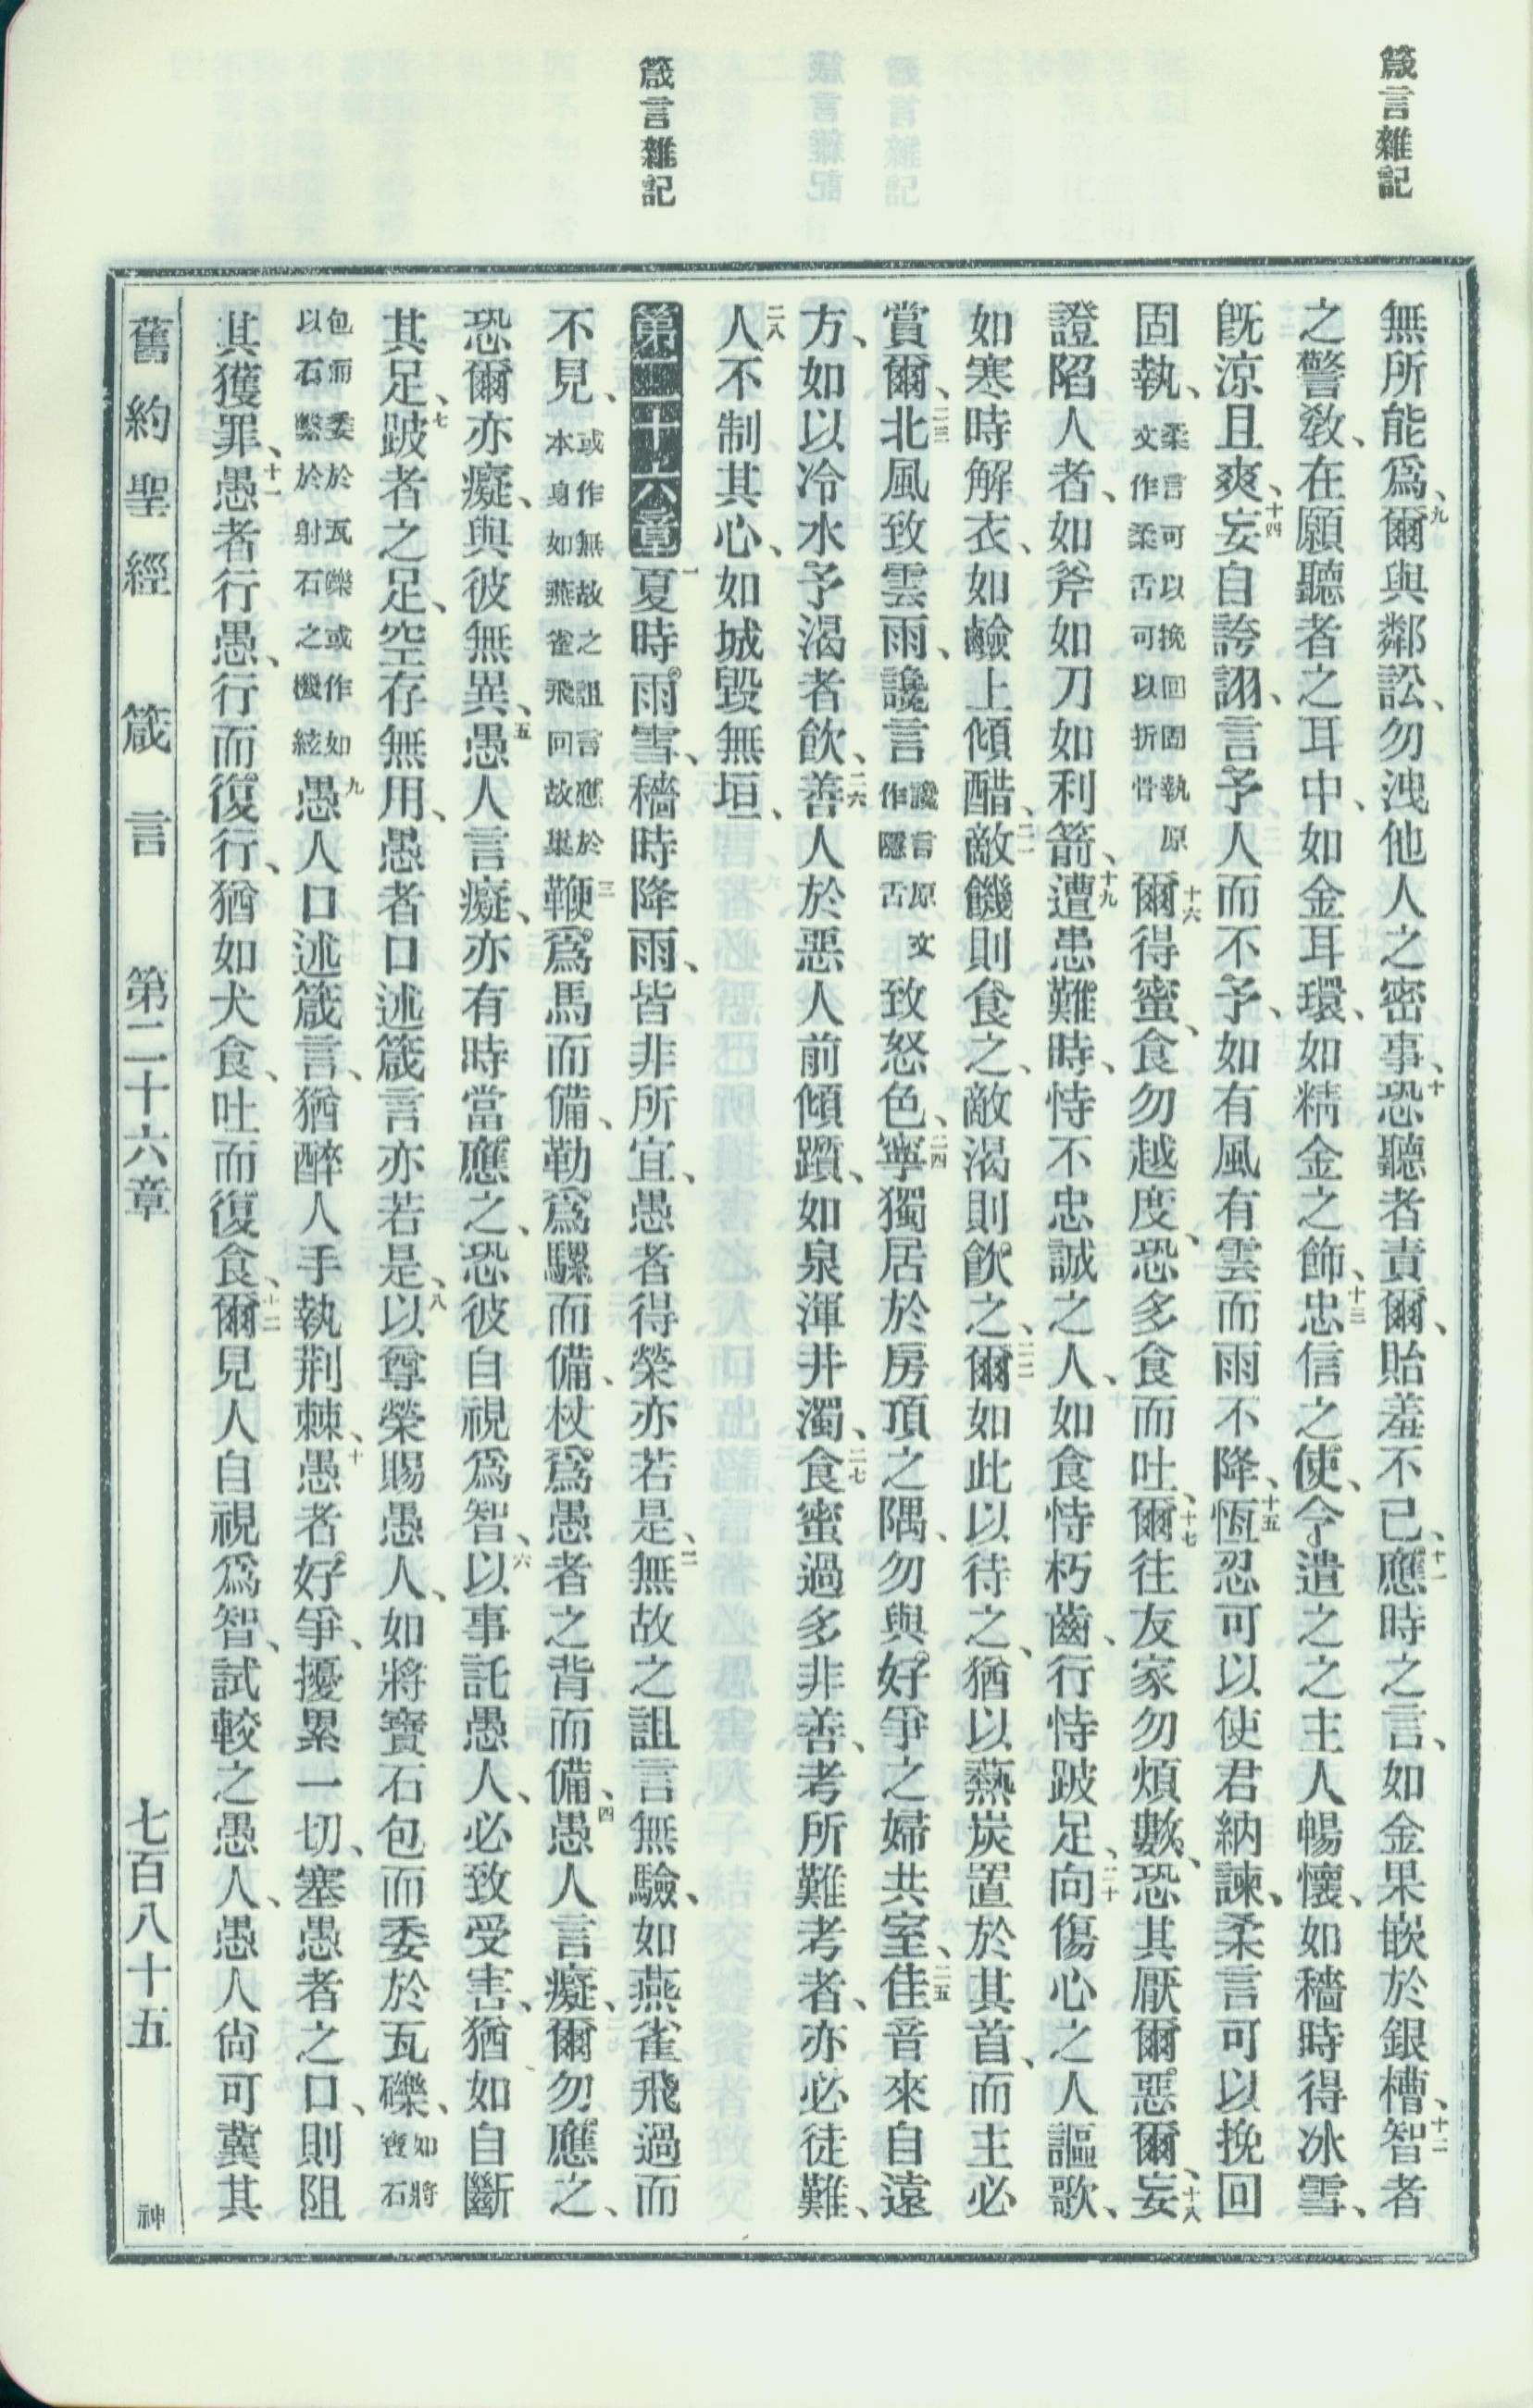 箴言雜記
箴言雜記
無所能爲、九爾與鄰訟、勿洩他人之密事、十恐聽者責爾、貽羞不已、十一應時之言、如金果嵌於銀槽、十二智者
之警敎、在願聽者之耳中、如金耳環、如精金之飾、十三忠信之使、令遣之之主人暢懷、如穡時得冰雪、
旣涼且爽、十四妄自誇詡、言予人而不予、如有風有雲而雨不降、十五恆忍可以使君納諫、柔言可以挽回
固執、柔言可以挽回固執原文作柔舌可以折骨十六爾得蜜、食勿越度、恐多食而吐、十七爾往友家勿煩數、恐其厭爾惡爾、十八妄
證陷人者、如斧如刀如利箭、十九遭患難時、恃不忠誠之人、如食恃朽齒、行恃跛足、二十向傷心之人謳歌、
如寒時解衣、如鹼上傾醋、二一敵饑則食之、敵渴則飮之、二二爾如此以待之、猶以爇炭置於其首、而主必
賞爾、二三北風致雲雨、讒言讒言原文作隱舌致怒色、二四寧獨居於房頂之隅、勿與好爭之婦共室、二五佳音來自遠
方、如以冷水予渴者飮、二六善人於惡人前傾躓、如泉渾井濁、二七食蜜過多非善、考所難考者、亦必徒難、
二八人不制其心、如城毀無垣、
第二十六章一夏時雨雪、穡時降雨、皆非所宜、愚者得榮亦若是、二無故之詛言無驗、如燕雀飛過而
不見、或作無故之詛言應於本身如燕雀飛回故巢三鞭爲馬而備、勒爲騾而備、杖爲愚者之背而備、四愚人言癡、爾勿應之、
恐爾亦癡、與彼無異、五愚人言癡、亦有時當應之、恐彼自視爲智、六以事託愚人、必致受害、猶如自斷
其足、七跛者之足、空存無用、愚者口述箴言亦若是、八以尊榮賜愚人、如將寶石包而委於瓦礫、如將寶石
包而委於瓦礫或作如以石繫於射石之機絃九愚人口述箴言、猶醉人手執荆棘、十愚者好爭、擾累一切、塞愚者之口、則阻
其獲罪、十一愚者行愚、行而復行、猶如犬食、吐而復食、十二爾見人自視爲智、試較之愚人、愚人尙可冀其
舊約聖經 箴言 第二十六章 七百八十五 神